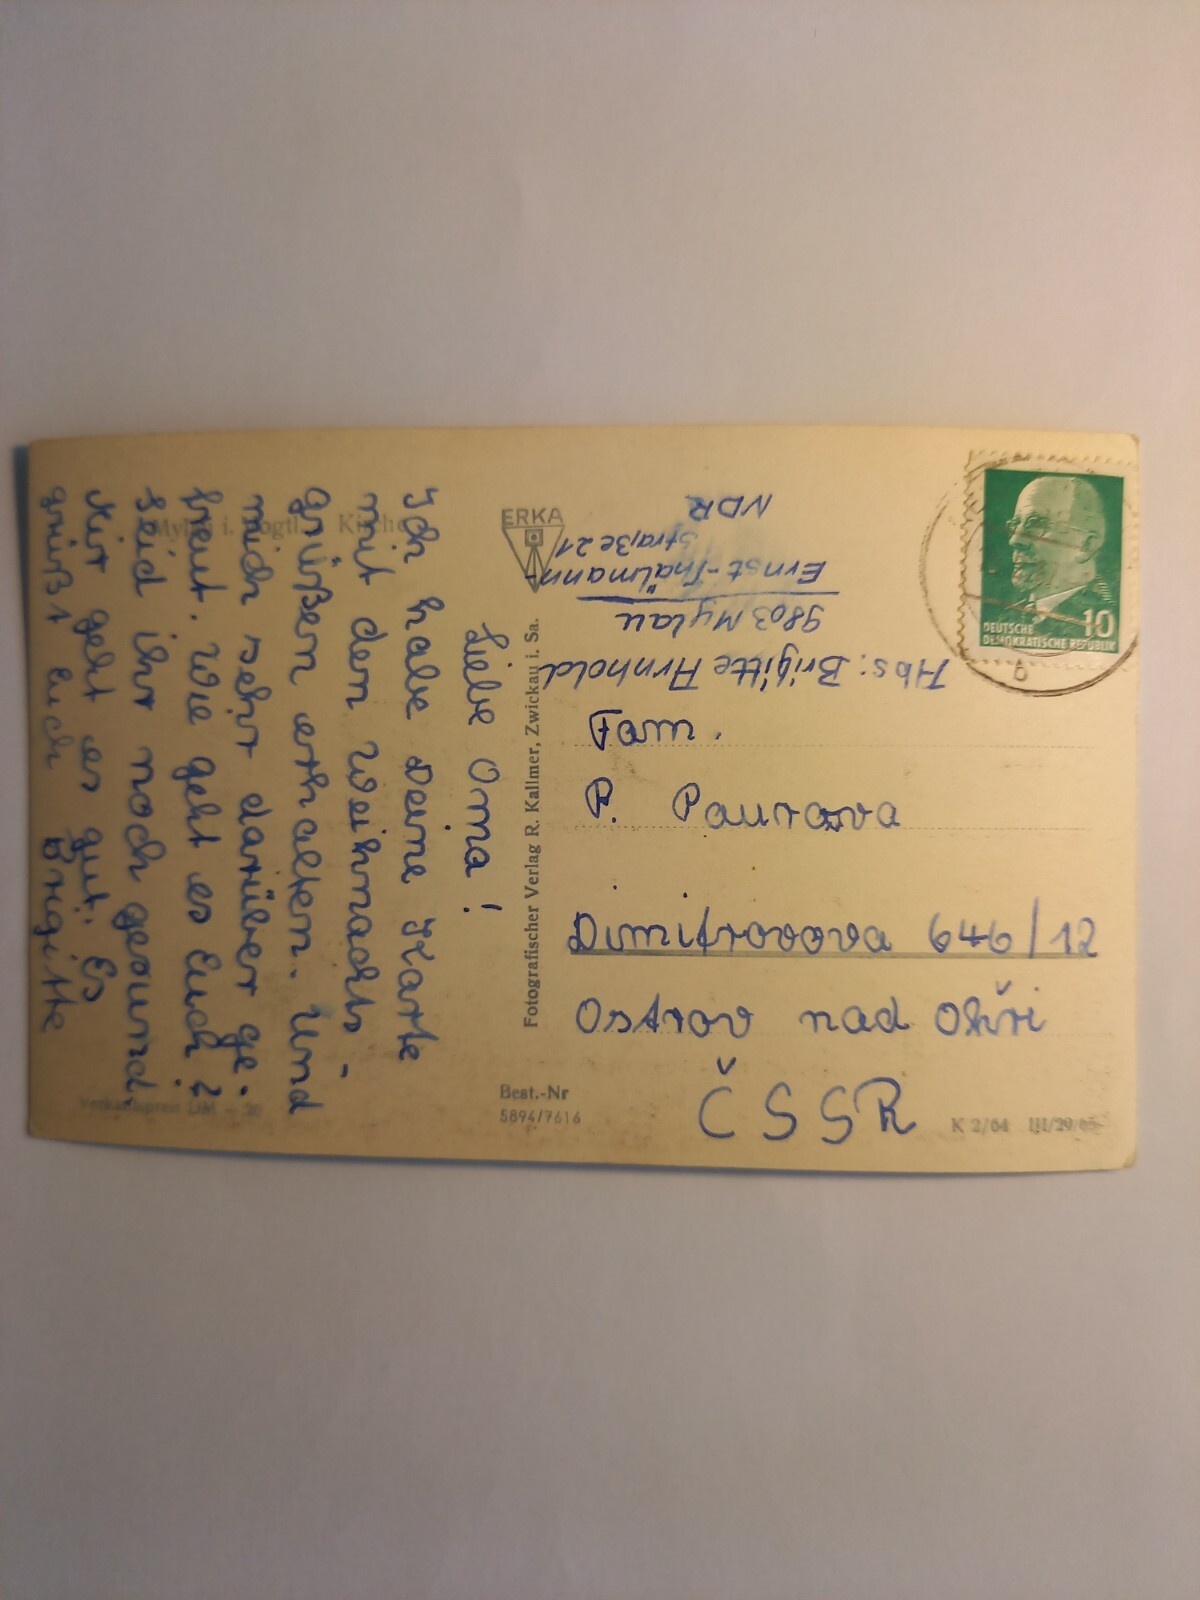 Mylau i. Vogtl. Kirche
Liebe Oma!
Ich habe Deine Karte
mit den Weihnachts-
grüßen erhalten. Und
mich sehr darüber ge-
freut. Wie geht es Euch?
Seid ihr noch gesund.
Mir geht es gut. Es
grüßt Euch Brigitte
Verkaufspreis DM -.20
ERKA
Fotografischer Verlag R. Kallmer, Zwickau i. Sa.
Best.-Nr
5894/7616
Abs: Brigitte Arnhold
9803 Mylau
Ernst-Thälmann-
Straße 21
NDR
DEUTSCHE
DEMOKRATISCHE REPUBLIK
10
Fam.
P.
Dimitrovova 646/12
Ostrov nad Ohři
ČSSR
K 2/64 III/29/65